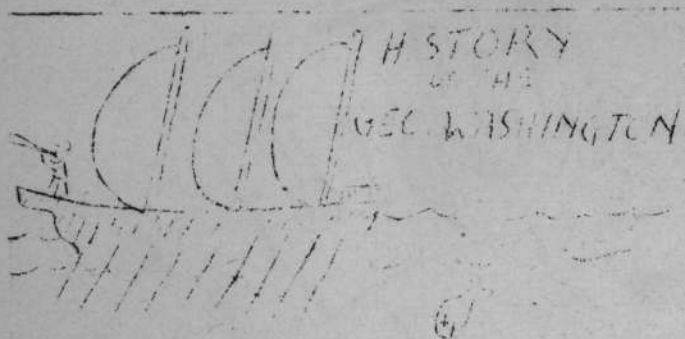 HISTORY
OF THE
GEO. WASHINGTON